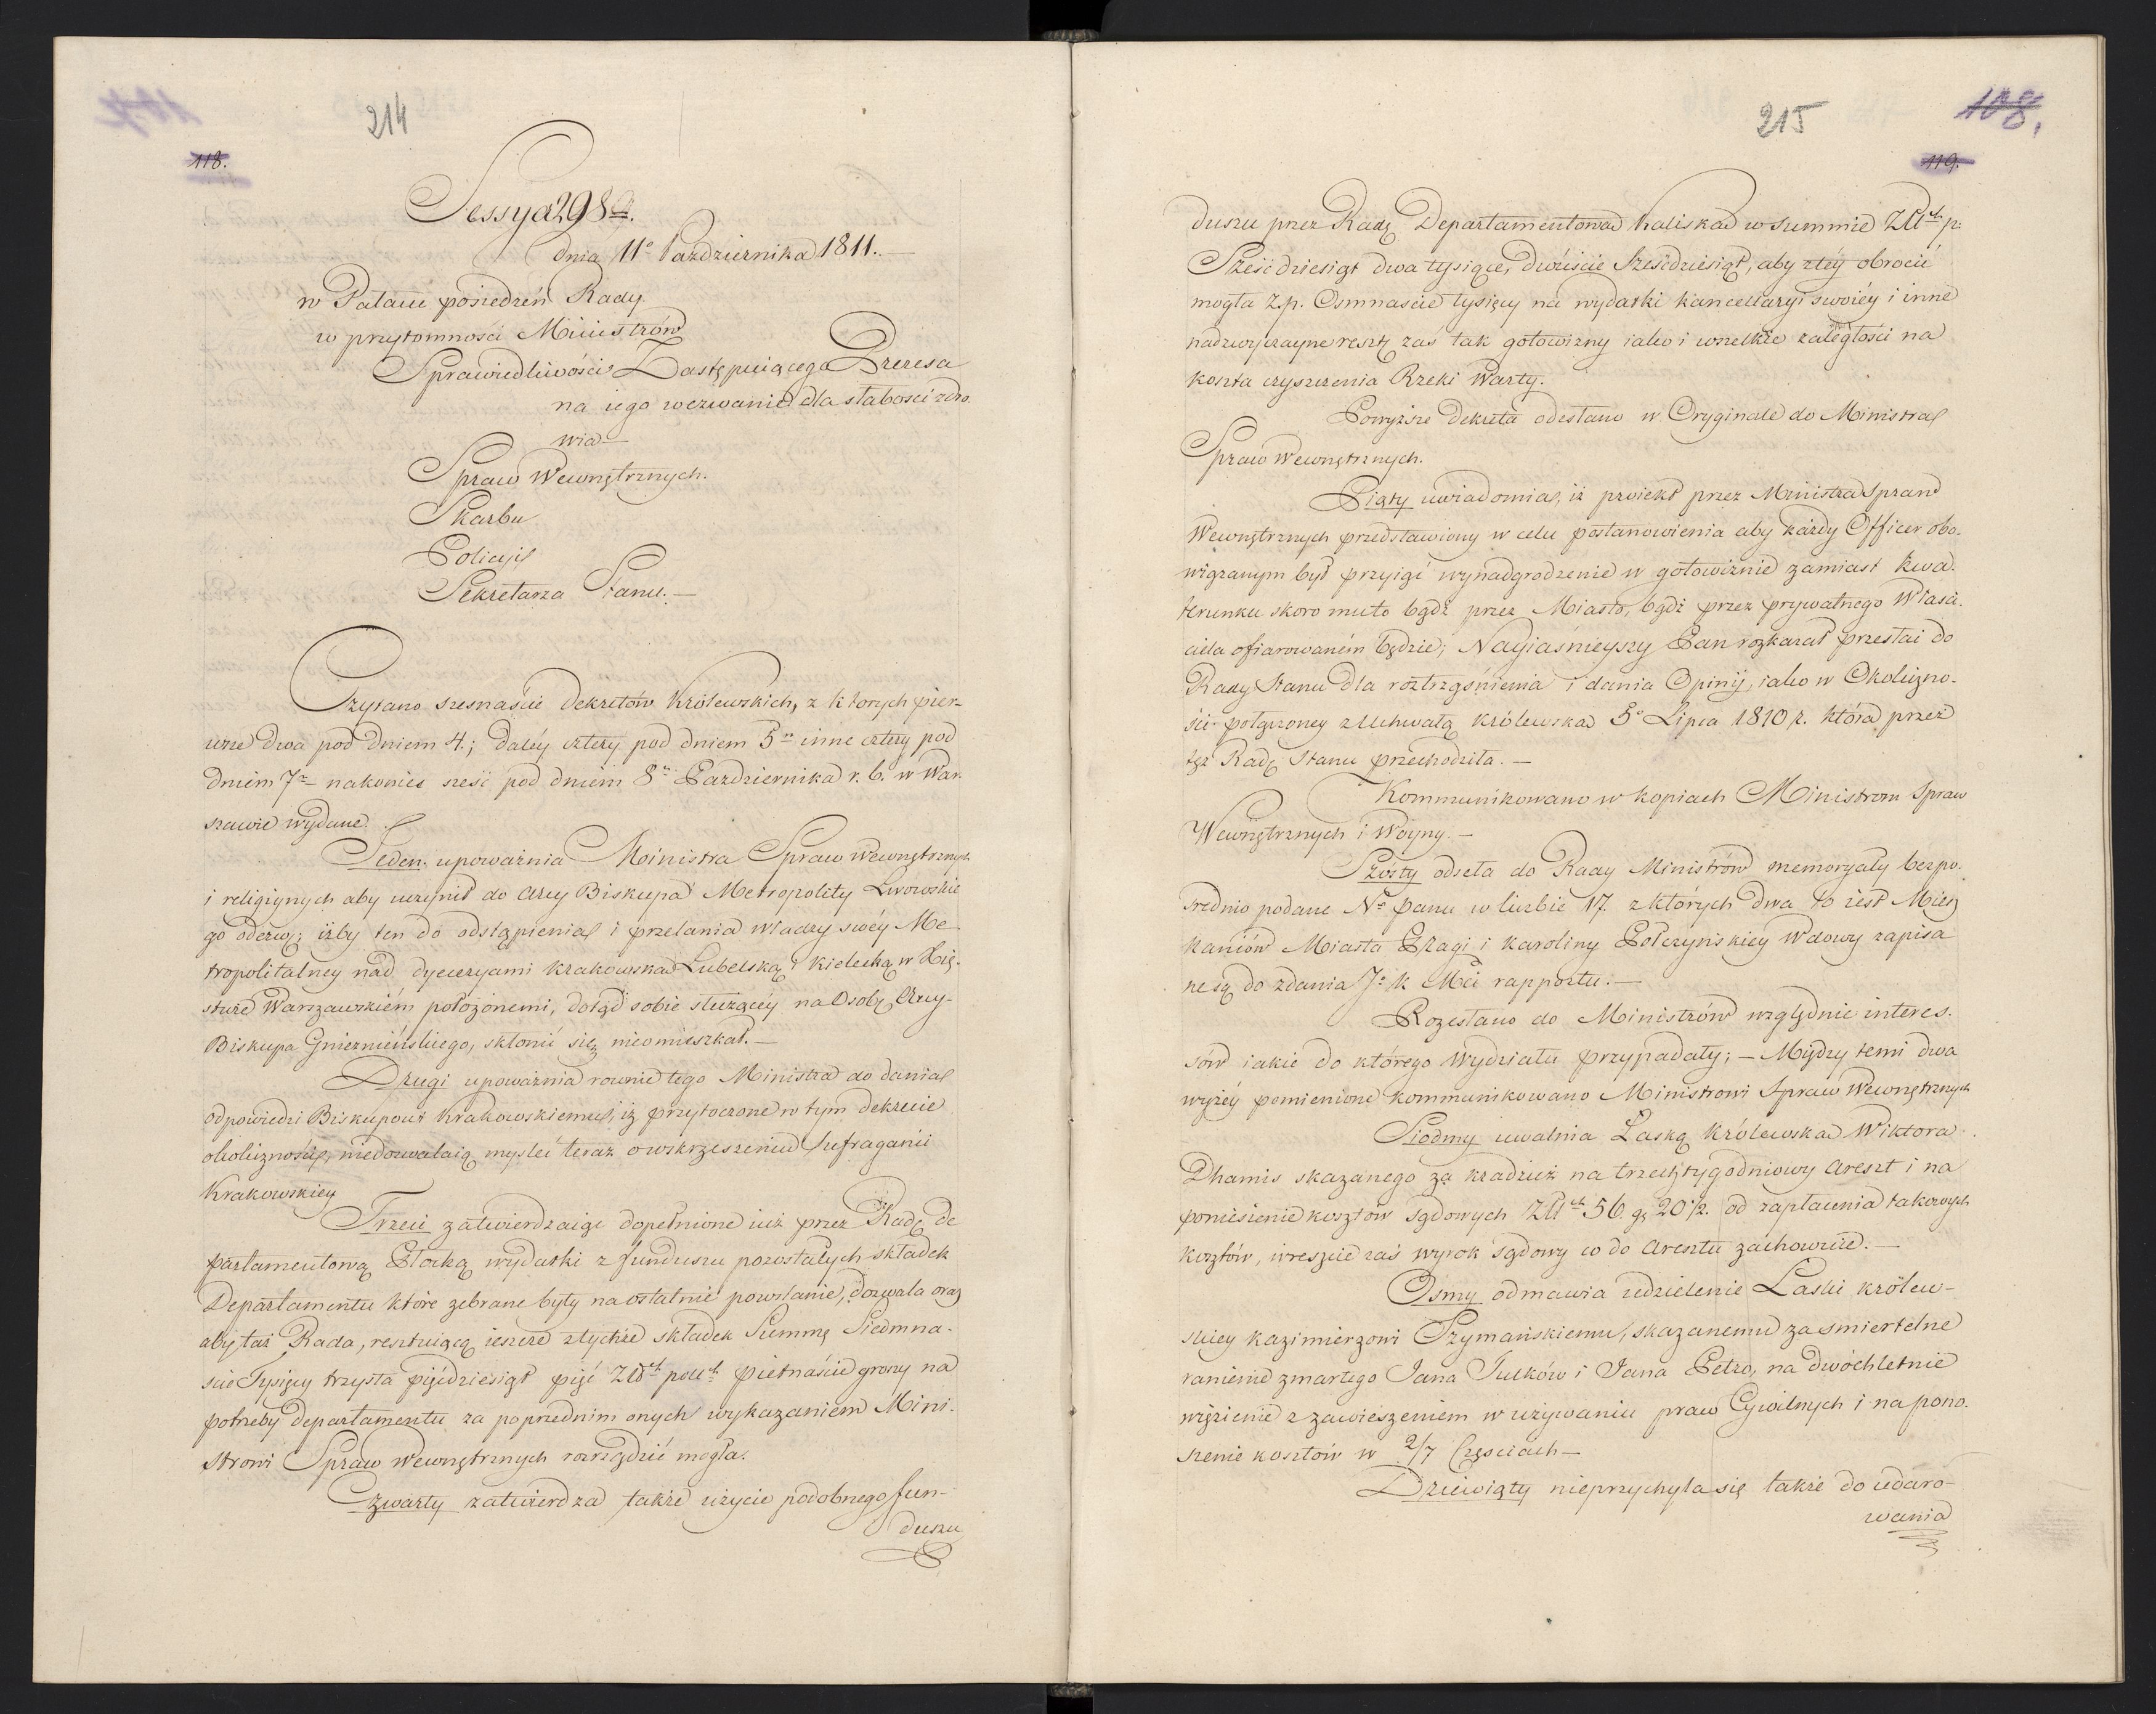 214
118.
Sessya 298a.
dnia 11o Pazdziernika 1811.
w Pałacu posiedzeń Rady.
w przytomności Ministrów
Sprawiedliwości Zastępuiącego Prezesa
na iego wezwanie dla słabosci zdro-
wia
Spraw Wewnętrznych.
Skarbu
Policyi
Sekretarza Stanu. —
Czytano szesnaście Dekretów Królewskich, z ktorych pier-
wsze dwa pod dniem 4.; daléy cztery pod dniem 5m inne cztery pod
dniem 7m nakoniec sześć pod dniem 8m Pazdziernika r. b. w War-
szawie wydane.
Jeden upoważnia Ministra Spraw Wewnętrznych
i religiynych aby uczynił do Arcy Biskupa Metropolity Lwowskie
go odezwę; iżby ten do odstąpienia i przelania władzy swéy Me-
tropolitalney nad dyecezyami Krakowską Lubelską i Kielecką w Xię-
stwie Warszawskiém położonemi, dotąd sobie służącéy na Osobę Arcy-
Biskupa Gnieznieńskiego, skłonić się nieomieszkał. —
Drugi upoważnia rownie tego Ministra do dania
odpowiedzi Biskupowi Krakowskiemu, iż przytoczone w tym dekrecie
okoliczności, niedozwalaią mysleć teraz o wskrzeszeniu Sufraganii
Krakowskiey
Trzeci zatwierdzaiąc dopełnione iuż przez Radę De
partamentową Płocką wydatki z funduszu pozostałych składek
Departamentu które zebrane były na ostatnie powstanie, dozwala oraz
aby taż Rada, resztuiącą ieszcze z tychże składek Summę Siedmna-
scie Tysięcy trzysta pięćdziesiąt pięć Złt pols: piętnaście groszy na
potrzeby departamentu za poprzednim onych wykazaniem Mini-
strowi Spraw Wewnętrznych rozrządzić mogła.
Czwarty zatwierdza także użycie podobnego fun-
duszu
215
108.
119.
duszu przez Radę Departamentową Kaliską w Summie Złt p:
Sześćdziesiąt dwa tysiące, dwieście Sześćdziesiąt, aby z téy obrocić
mogła Z.p. Osmnascie tysięcy na wydatki kancellaryi swoiéy i inne
nadzwyczayne resztę zaś tak gotowizny iako i wszelkie zaległości na
koszta czyszczenia Rzeki Warty.
Powyższe Dekreta odesłano w Oryginale do Ministra
Spraw Wewnętrznych.
Piąty uwiadomia, iż proiekt przez Ministra Spraw
Wewnętrznych przedstawiony w celu postanowienia aby każdy Officer obo-
wiązanym był przyiąć wynadgrodzenie w gotowiźnie zamiast kwa-
terunku skoro mu to bądź przez Miasto, bądź przez prywatnego Właści-
ciela ofiarowaném będzie; Nayiaśnieyszy Pan rozkazał przesłać do
Rady Stanu dla roztrząśnienia i dania Opinij, iako w Okoliczno-
ści połączoney z Uchwałą Królewską 5o Lipca 1810 r. która przez
też Radę Stanu przechodziła. —
Kommunikowano w kopiach Ministrom Spraw
Wewnętrznych i Woyny. —
Szósty odseła do Rady Ministrów memoryały bezpo-
srednio podane No Panu w liczbie 17. z których dwa to iest Miesz
kańców Miasta Pragi i Karoliny Połczyńskiey Wdowy zapisa
ne są do zdania J: K Mci rapportu. —
Rozesłano do Ministrów względnie interes-
sów iakie do którego Wydziału przypadały; — Między temi dwa
wyżéy pomienione kommunikowano Ministrowi Spraw Wewnętrznych
Siódmy uwalnia Łaską Królewską Wiktora
Dhamis skazanego za kradzież na trzechtygodniowy areszt i na
poniesienie kosztów sądowych Złt 56. gr 20 1/2. od zapłacenia takowych
kosztów, wreszcie zaś wyrok sądowy co do Aresztu zachowuie. —
Osmy odmawia udzielenie Łaski królew-
skiey Kazimierzowi Szymańskiemu, skazanemu za smiertelne
ranienie zmarłego Jana Julków i Jana Petza, na dwóchletnie
więzienie z zawieszeniem w używaniu praw Cywilnych i na pono-
szenie kosztów w 2/7 Częściach —
Dziewiąty nieprzychyla się także do udaro-
wania